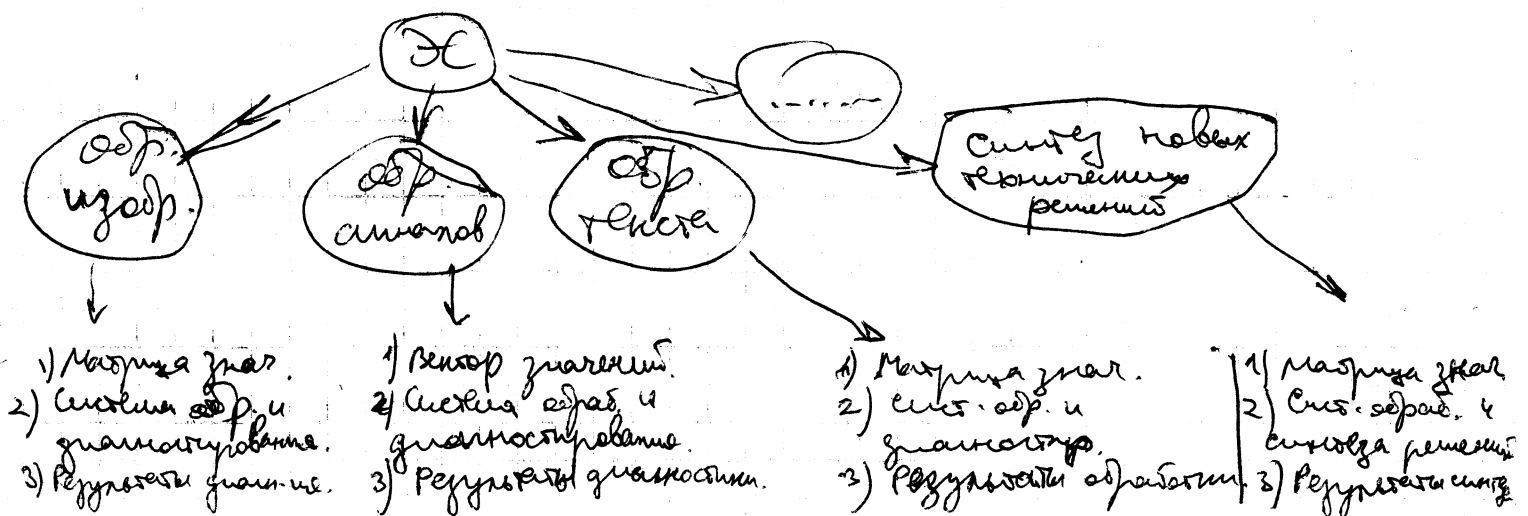 Ж
обр.
изобр.
обр.
сигналов
обр.
текста
.........
Синтез новых
технических
решений
1) Матрица знач.
2) Система обр. и
диагностирования.
3) Результаты диагн-ия.
1) Вектор значений.
2) Система обраб. и
диагностирования.
3) Результаты диагностики.
1) Матрица знач.
2) Сист. обр. и
диагностир.
3) Результаты обработки.
1) Матрица знач.
2) Сист. обраб. и
синтеза решений
3) Результаты синтез